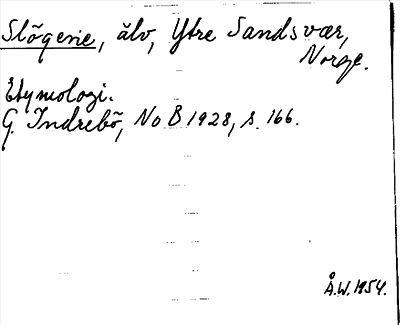 Slõgene, älv, Ytre Sandsvær,
Norge.
Etymologi.
G. Indrebõ, NoB 1928, s. 166.
Å.W. 1954.